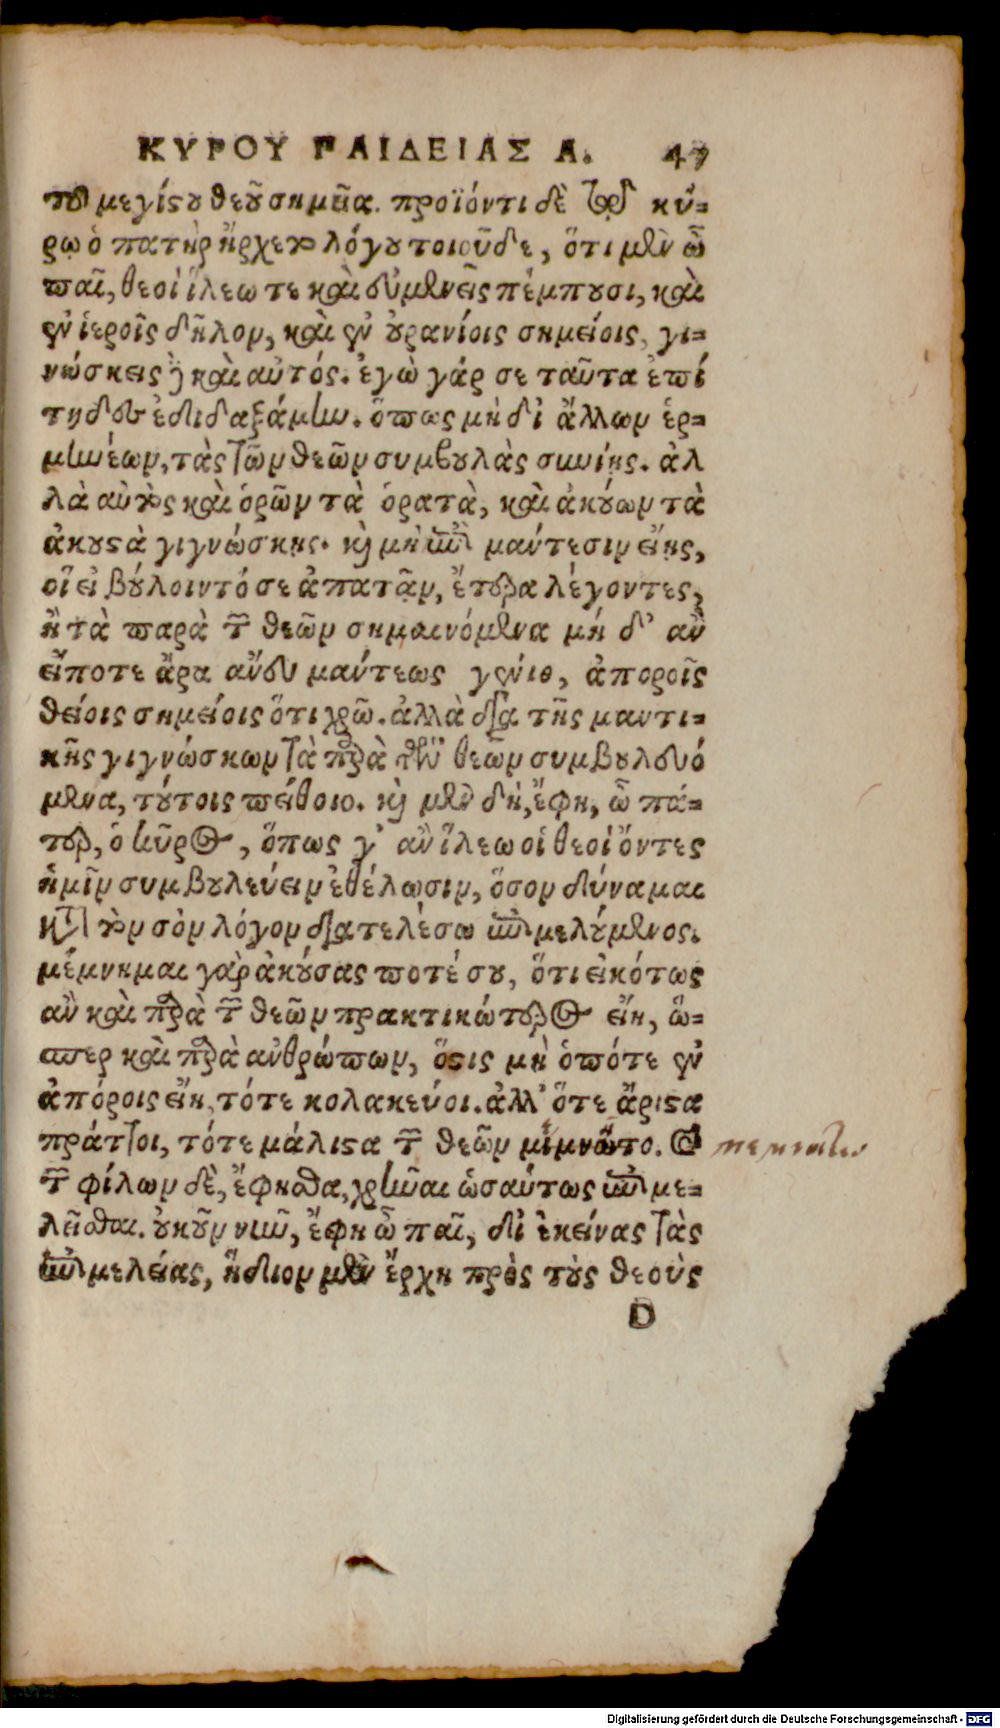 ΚΥΡΟΥ ΠΑΙΔΕΙΑΣ Α. 47
τοῦ μεγίστου θεοῦ σημεῖα. προϊόντι δὲ τῷ κύ-
ρῳ ὁ πατὴρ ἤρχετο λόγου τοιοῦδε, ὅτι μὲν ὦ
παῖ, θεοὶ ἵλεώ τε καὶ εὐμενεῖς πέμπουσι, καὶ
ἐν ἱεροῖς δῆλον, καὶ ἐν οὐρανίοις σημείοις, γι-
νώσκεις ἢ καὶ αὐτός. ἐγὼ γάρ σε ταῦτα ἐπί
τηδες ἐδιδαξάμην. ὅπως μὴ δι' ἄλλων ἑρ-
μηνέων, τὰς τῶν θεῶν συμβουλὰς συνίῃς. ἀλ
λὰ αὐτὸς καὶ ὁρῶν τὰ ὁρατὰ, καὶ ἀκούων τὰ
ἀκουστὰ γιγνώσκῃς. καὶ μὴ ἐπὶ μάντεσιν εἴης,
οἳ εἰ βούλοιντό σε ἀπατᾶν, ἕτερα λέγοντες,
ἢ τὰ παρὰ τῶν θεῶν σημαινόμενα μή δ' αὖ
εἴποτε ἄρα ἄνευ μάντεως γένιο, ἀποροῖς
θείοις σημείοις ὅτι χρῶ. ἀλλὰ διὰ τῆς μαντι-
κῆς γιγνώσκων τὰ παρὰ τῶν θεῶν συμβουλευό
μενα, τούτοις πείθοιο. καὶ μὲν δή, ἔφη, ὦ πά-
τερ, ὁ κῦρος, ὅπως γ' ἂν ἵλεω οἱ θεοὶ ὄντες
ἡμῖν συμβουλεύειν ἐθέλωσιν, ὅσον δύναμαι
κατὰ τὸν σὸν λόγον διατελέσω ἐπιμελούμενος.
μέμνημαι γὰρ ἀκούσας ποτέ σου, ὅτι εἰκότως
ἂν καὶ παρὰ τῶν θεῶν πρακτικώτερος εἴη, ὥ-
σπερ καὶ παρὰ ἀνθρώπων, ὅστις μὴ ὁπότε ἐν
ἀπόροις εἴη, τότε κολακεύοι. ἀλλ' ὅτε ἄριστα
πράττοι, τότε μάλιστα τῶν θεῶν μιμνῷτο. καὶ
τῶν φίλων δὲ, ἔφησθα, χρῆναι ὡσαύτως ἐπιμε-
λεῖσθαι. οὐκοῦν νῦν, ἔφη ὦ παῖ, δι' ἐκείνας τὰς
ἐπιμελείας, ἥδιον μὲν ἔρχῃ πρὸς τοὺς θεοὺς
D
Digitalisierung gefördert durch die Deutsche Forschungsgemeinschaft - DFG